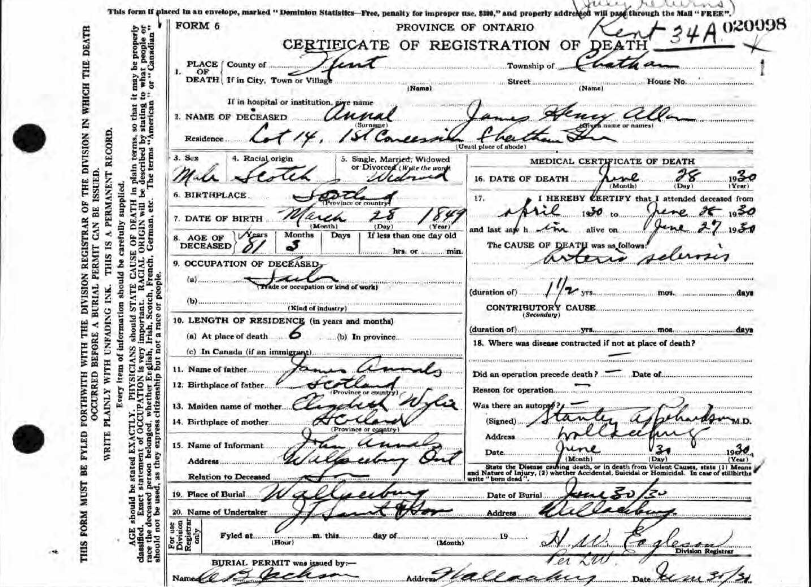 This form if placed in an envelope, marked "Dominion Statistics—Free, penalty for improper use, $300," and property addressed will pass through the Mail "FREE".
FORM 6
PROVINCE OF ONTARIO
Kent 34A 020098
CERTIFICATE OF REGISTRATION OF DEATH
1. PLACE OF DEATH County of Kent Township of Chatham
If in City, Town or Village (Name) Street (Name) House No.
If in hospital or institution, give name
2. NAME OF DECEASED Annal (Surname) James Henry Allan (Given name or names)
Residence Lot 14, 1st Concession Chatham (Usual place of abode)
3. Sex Male
4. Racial origin Scotch
5. Single, Married, Widowed or Divorced (Write the word)
6. BIRTHPLACE Scotland (Province or country)
7. DATE OF BIRTH March (Month) 28 (Day) 1849 (Year)
8. AGE OF DECEASED Years 81 Months 3 Days If less than one day old hrs. or min.
9. OCCUPATION OF DECEASED
(a) (Trade or occupation or kind of work)
(b) (Kind of industry)
10. LENGTH OF RESIDENCE (in years and months)
(a) At place of death 6 (b) In province
(c) In Canada (if an immigrant)
11. Name of father James Annals
12. Birthplace of father Scotland (Province or country)
13. Maiden name of mother Wylie
14. Birthplace of mother (Province or country)
15. Name of Informant John Annals
Address Wallaceburg Ont
Relation to Deceased
19. Place of Burial Wallaceburg Date of Burial June 30/30
20. Name of Undertaker Address Wallaceburg
MEDICAL CERTIFICATE OF DEATH
16. DATE OF DEATH June (Month) 28 (Day) 1930 (Year)
17. I HEREBY CERTIFY that I attended deceased from
April 1930 to June 28 1930
and last saw him alive on June 27 1930
The CAUSE OF DEATH was as follows:
arterio sclerosis
(duration of) 1 1/2 yrs. mos. days
CONTRIBUTORY CAUSE (Secondary)
(duration of) yrs. mos. days
18. Where was disease contracted if not at place of death? —
Did an operation precede death? — Date of
Reason for operation —
Was there an autopsy? —
(Signed) Stanley M.D.
Address Wallaceburg
Date June (Month) 30 (Day) 1930 (Year)
State the Disease causing death, or in death from Violent Causes, state (1) Means and Nature of Injury, (2) whether Accidental, Suicidal or Homicidal. In case of stillbirths write "born dead".
For use Division Registrar only
Fyled at (Hour) m. this day of (Month) 19
H. W. Eagleson Division Registrar
BURIAL PERMIT was issued by:—
Name Jackson Address Wallaceburg Date
THIS FORM MUST BE FYLED FORTHWITH WITH THE DIVISION REGISTRAR OF THE DIVISION IN WHICH THE DEATH
OCCURRED BEFORE A BURIAL PERMIT CAN BE ISSUED.
WRITE PLAINLY WITH UNFADING INK. THIS IS A PERMANENT RECORD.
Every item of information should be carefully supplied.
AGE should be stated EXACTLY. PHYSICIANS should STATE CAUSE OF DEATH in plain terms, so that it may be properly
classified. Exact statement of OCCUPATION is very important. RACIAL ORIGIN will be described by stating to what people or
race the deceased person belonged, whether English, Irish, Scotch, French, German, etc. The terms "American" or "Canadian"
should not be used, as they express citizenship but not a race or people.